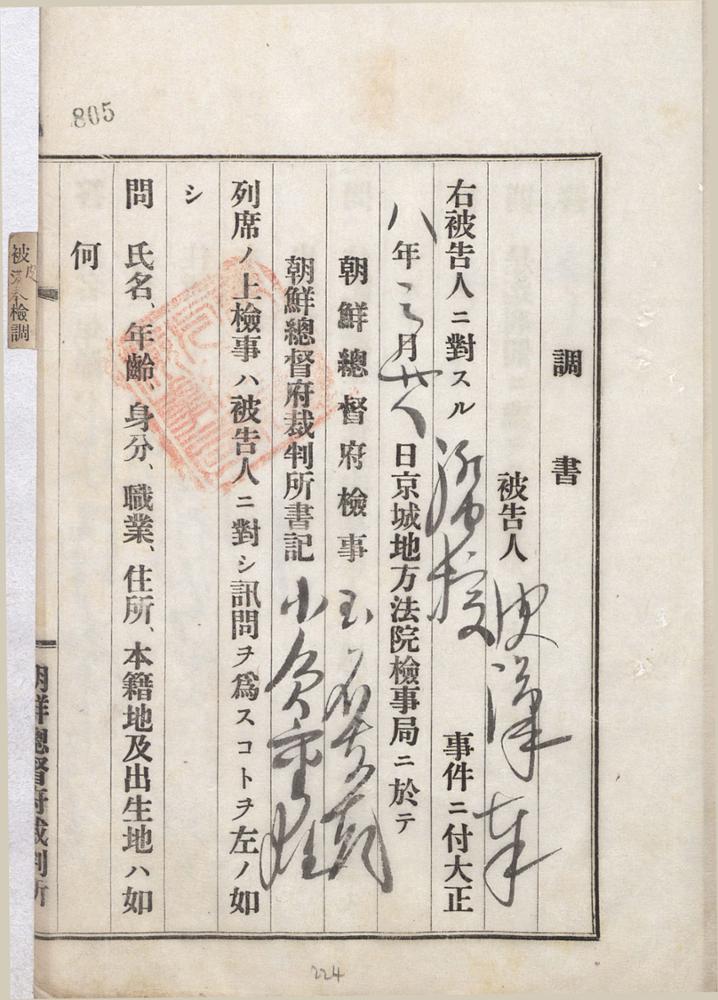 805
調書
被告人 皮漢奉
右被告人ニ對スル 事件ニ付大正
八年三月廿八日京城地方法院檢事局ニ於テ
朝鮮總督府檢事 玉名友彦
朝鮮總督府裁判所書記 小
列席ノ上檢事ハ被告人ニ對シ訊問ヲ爲スコトヲ左ノ如
シ
問 氏名、年齡、身分、職業、住所、本籍地及出生地ハ如
何
朝鮮總督府裁判所
檢調
224